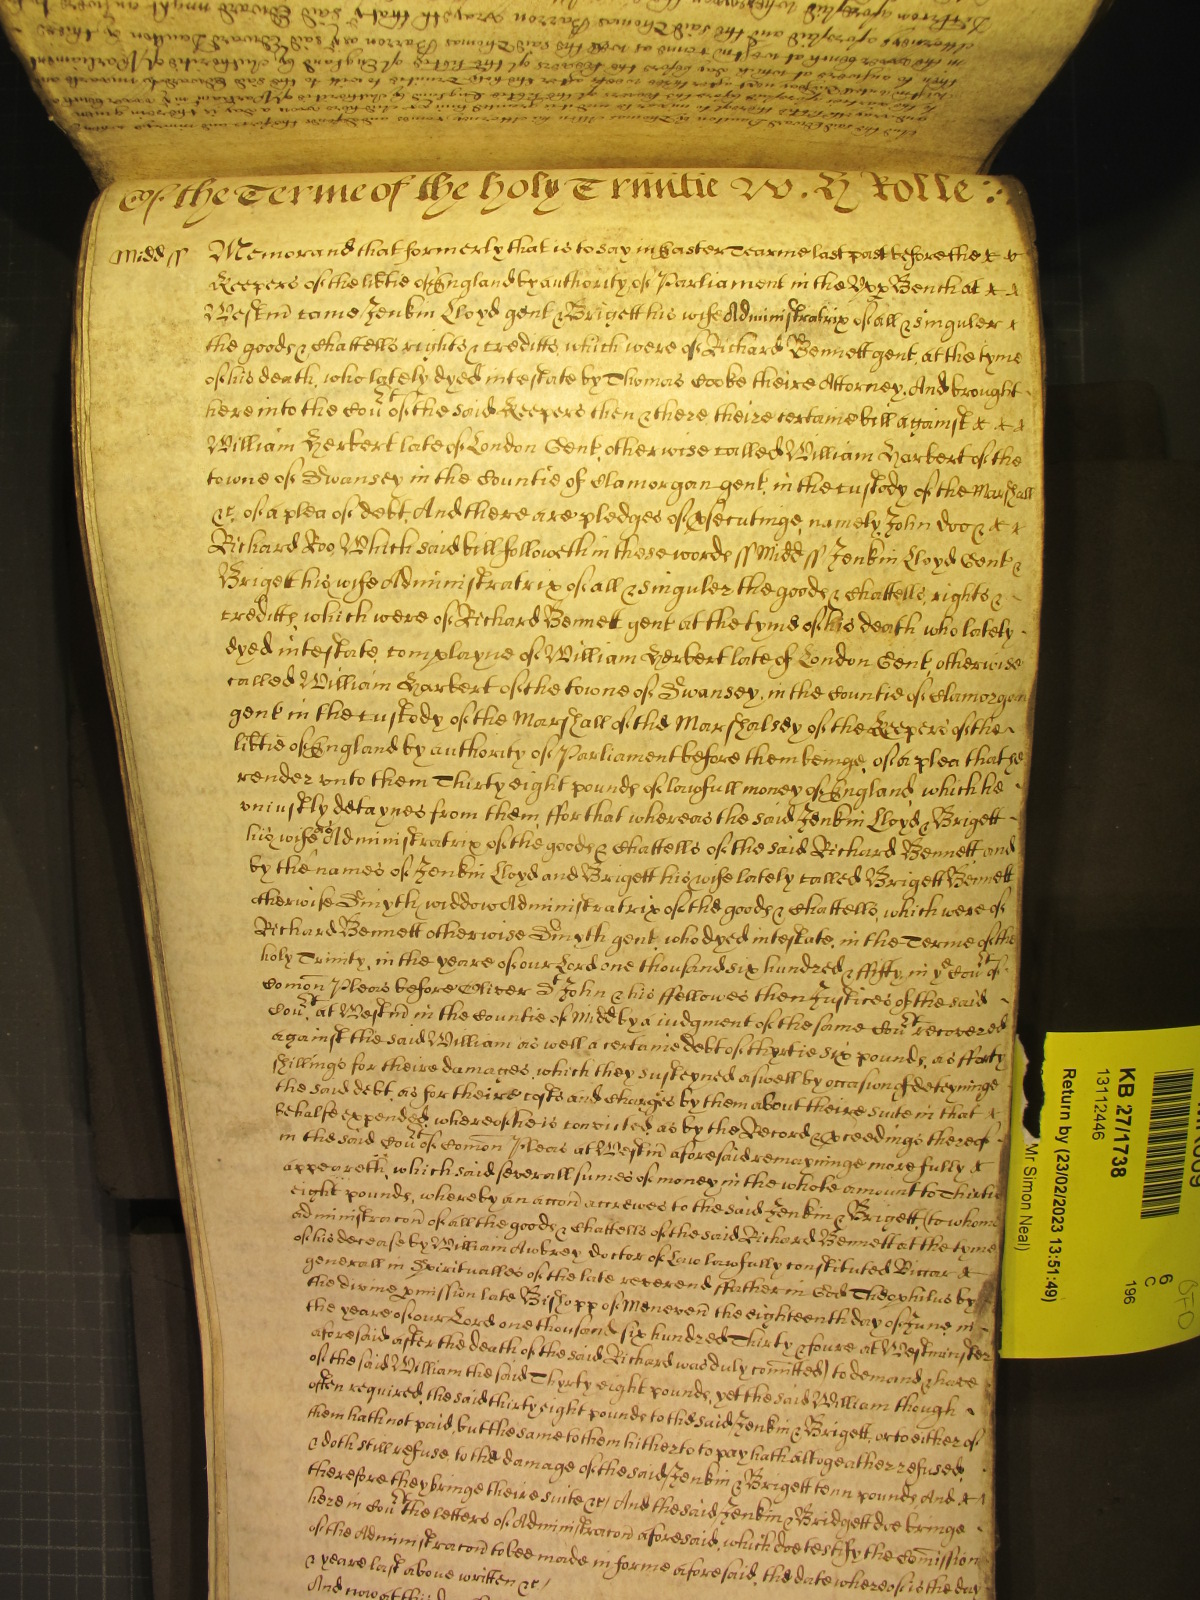 Of the Terme of the Holy Trinitie W. H Rolle
Midd ss Memorand that formerly that is to say in Easter Tearme last past before the
Keepers of the libtie of England by authority of Parliament in the Vpp Bench at
Westm̄ came Jenkin Lloyd gent & Brigett his wife Administratrix of all & singuler
the goods & Chattells rights & creditts, which were of Richard Bennett gent, at the tyme
of his death, who lately dyed intestate by Thomas Cooke theire Attorney, And brought
here into the Court of the said Keepers then & there, theire certaine bill against
William Herbert late of London Gent, otherwise called William Harbert of the
towne of Swansey in the Countie of Glamorgan gent, in the custody of the Marshall
&c, of a plea of debt, And there are pledges of psecutinge, namely, John Doo &
Richard Roo, Which said bill followeth in these words ss Midd ss Jenkin Lloyd Gent &
Brigett his wife Administratrix of all & singuler the goods & Chattells, rights &
creditts, which were of Richard Bennett gent at the tyme of his death who lately
dyed intestate, complayne of William Herbert late of London Gent otherwise
called William Harbert of the towne of Swansey, in the Countie of Glamorgan
gent in the custody of the Marshall of the Marshalsey of the Keepers of the
libtie of England by authority of Parliament before them beinge, of a plea that he
render vnto them Thirty eight pounds of lawfull money of England, which he
vniustly detaynes from them, ffor that whereas the said Jenkin Lloyd & Brigett
his wife as Administratrix of the goods & Chattells of the said Richard Bennett and
by the names of Jenkin Lloyd and Brigett his wife lately called Brigett Bennett
otherwise Smyth, widdow Administratrix of the goods & Chattells, which were of
Richard Bennett otherwise Smyth gent, who dyed intestate, in the Terme of the
holy Trinity, in the yeare of our Lord one thousand six hundred & ffifty, in ye Court of
Comōn Pleas before Oliver St John & his ffellowes then Justices of the said
Court, at Westm̄ in the Countie of Midd by a iudgment of the same Court recovered
against the said William as well a certaine debt of thyrtie six pounds, as fforty
shillings for theire damages, which they susteyned aswell by occasion of deteyninge
the said debt, as for theire costs and charges by them about theire suite in that
behalfe expended, whereof he is convicted, as by the Record & pceedings thereof
in the said Court of Comōn Pleas at Westm̄ aforesaid remayninge more fully
appeareth, which said severall sumes of money in the whole amount to Thirtie
eight pounds, whereby an accōn accrewes to the said Jenkin & Brigett, (to whome
administracōn of all the goods & Chattells of the said Richard Bennett at the tyme
of his decease by William Awbrey doctor of Law lawfully constituted Viccar
generall in Spiritualles of the late reverend ffather in God Theophilus by
the divine pmission late Bishopp of Meneven̄ the eighteenth day of June in
the yeare of our Lord one thousand six hundred Thirty & foure at Westminster
aforesaid after the death of the said Richard was duly comitted) to demand & have
of the said William the said Thyrty eight pounds, yet the said William though
often required, the said thirty eight pounds to the said Jenkin & Brigett, or to either of
them hath not paid, but the same to them hitherto to pay hath altogeather refused,
& doth still refuse, to the damage of the said Jenkin & Brigett tenn pounds, And
therefore they bringe theire suite &c/ And the said Jenkin & Bridgett doe bringe
here in Court the letters of Administracōn aforesaid, which doe testify the Comission
of the Administracōn to bee made in forme aforesaid, the date whereof is the day
& yeare last aboue written &c/
And now at this
KB 27/1738
13112446
Return by (23/02/2023 13:51:49)
Mr Simon Neal)
6
C
196